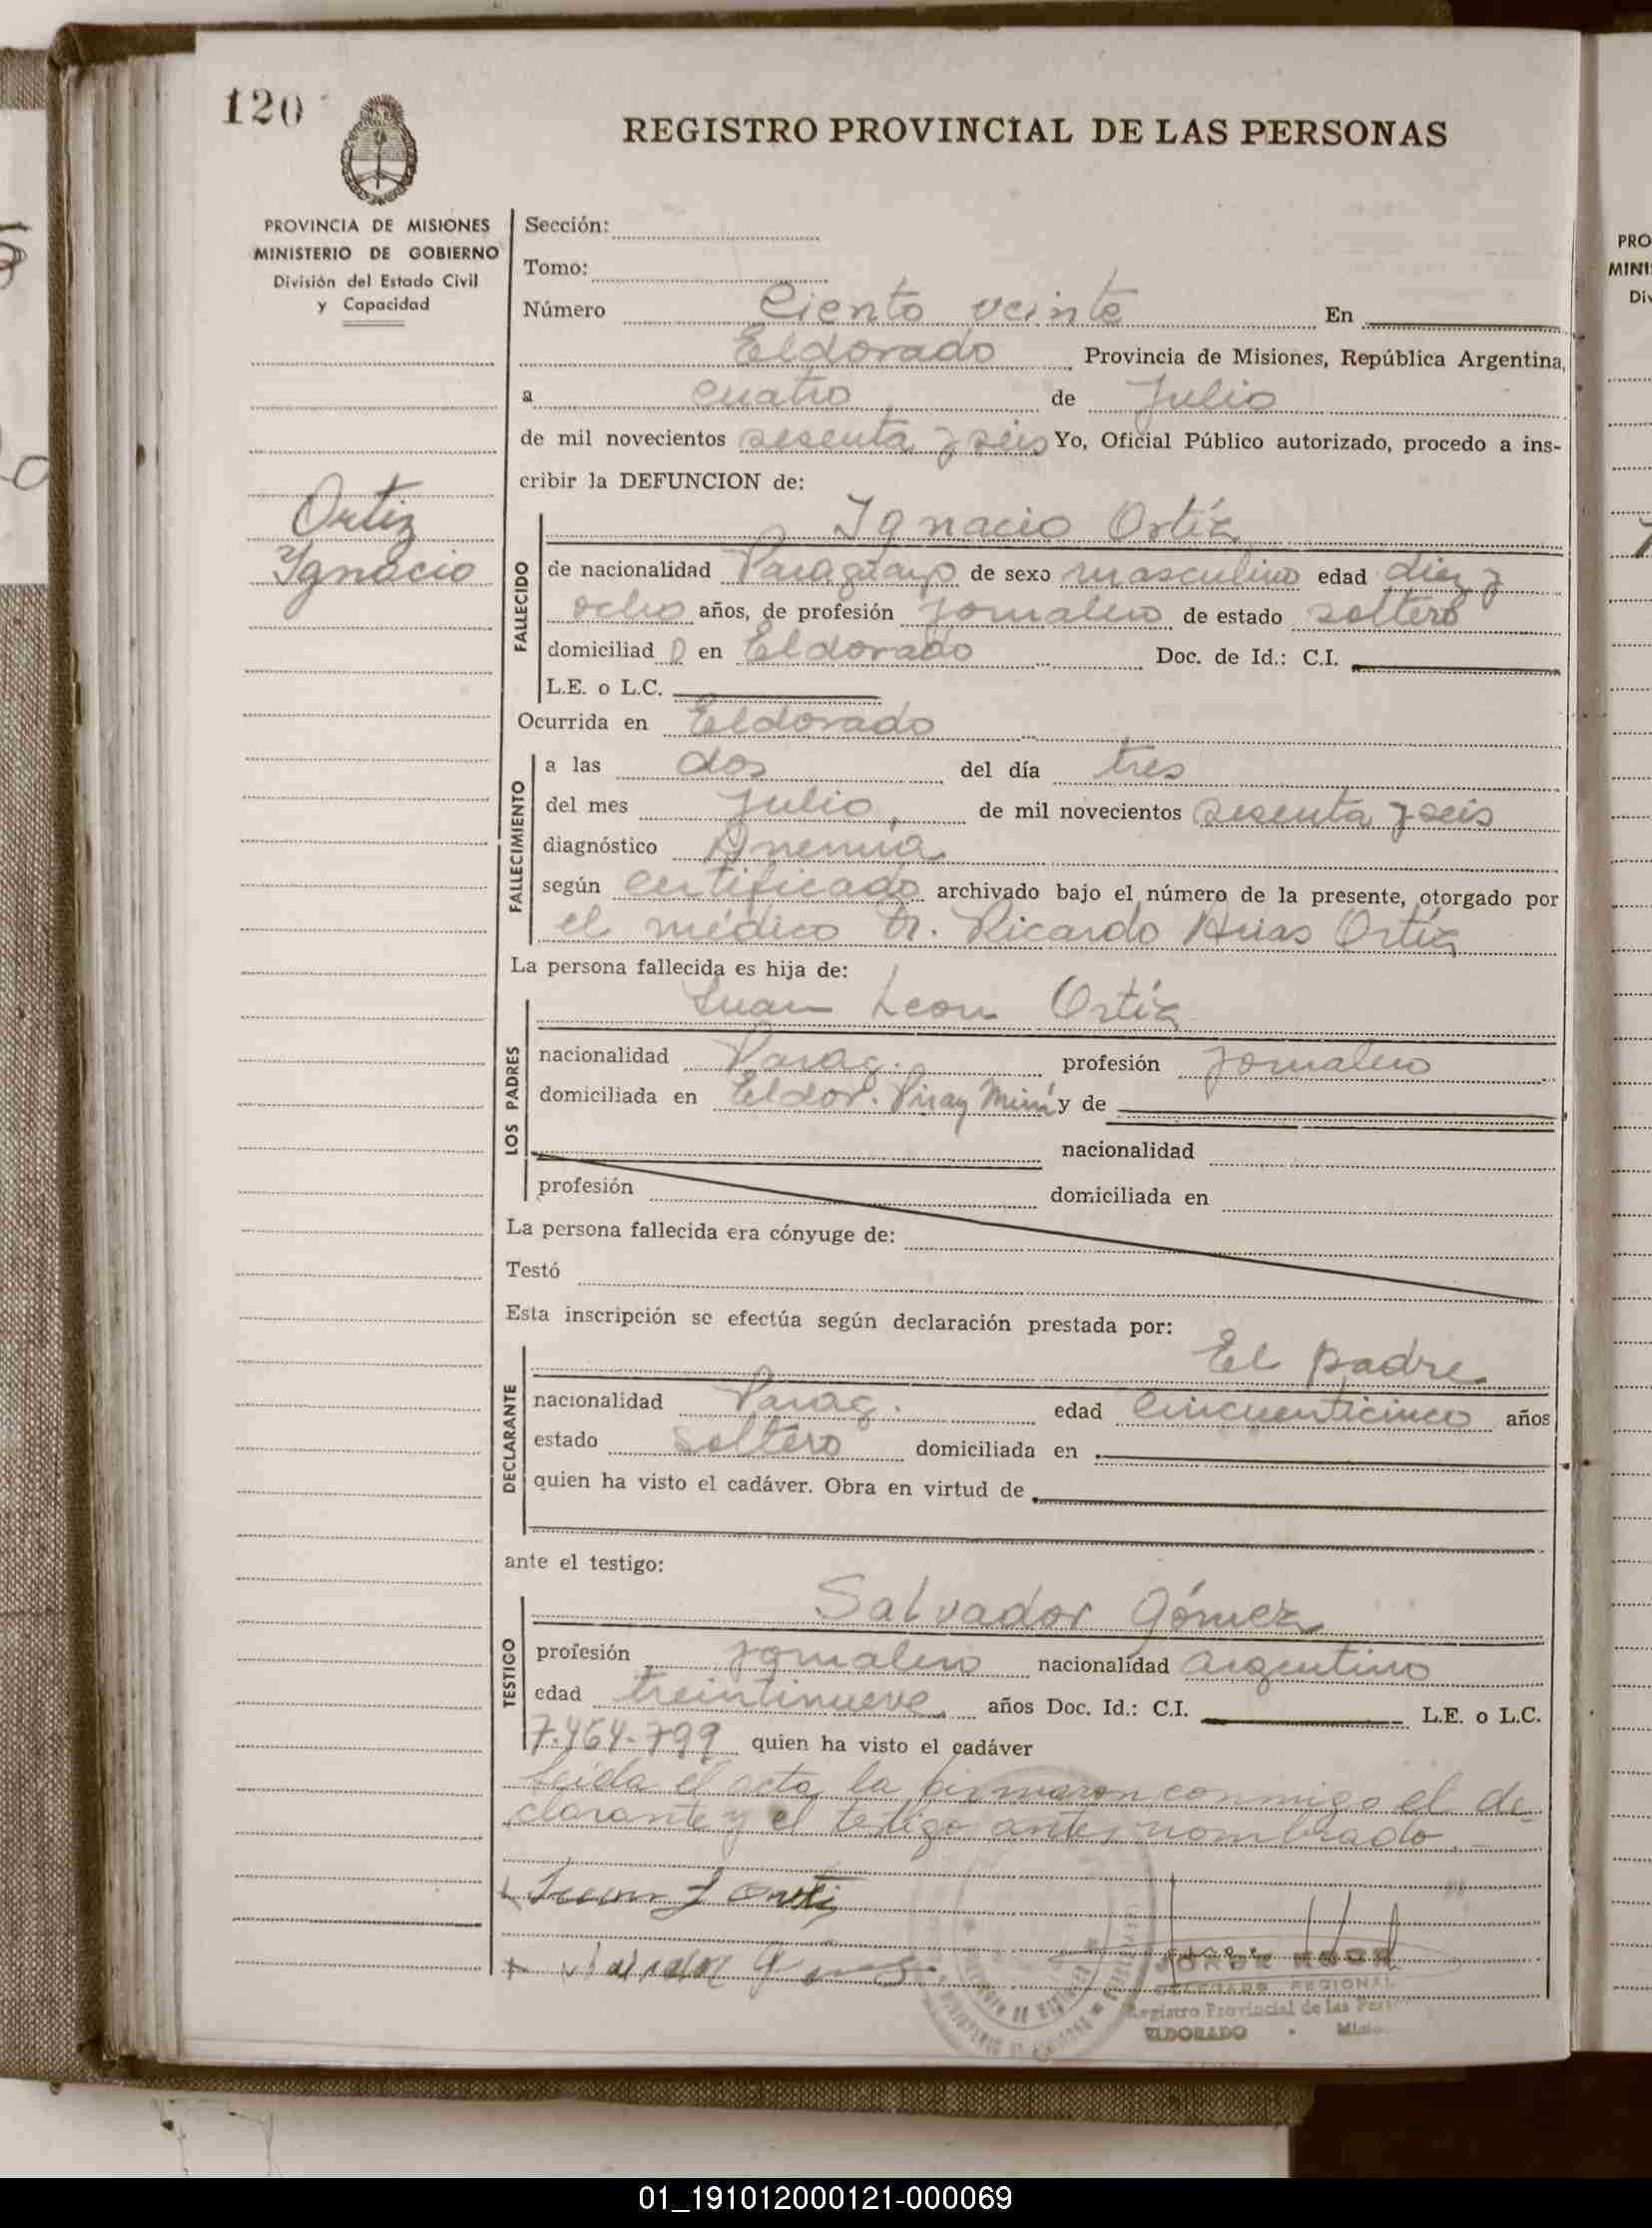 120
REGISTRO PROVINCIAL DE LAS PERSONAS
PROVINCIA DE MISIONES
MINISTERIO DE GOBIERNO
División del Estado Civil
y Capacidad
Ortiz
Ignacio
Sección:
Tomo:
Número Ciento veinte En
Eldorado Provincia de Misiones, República Argentina,
a cuatro de Julio
de mil novecientos sesenta y seis Yo, Oficial Público autorizado, procedo a ins-
cribir la DEFUNCION de:
FALLECIDO
Ignacio Ortíz
de nacionalidad Paraguayo de sexo masculino edad diez y
ocho años, de profesión jornalero de estado soltero
domiciliad o en Eldorado Doc. de Id.: C.I.
L.E. o L.C.
Ocurrida en Eldorado
FALLECIMIENTO
a las dos del día tres
del mes Julio, de mil novecientos sesenta y seis
diagnóstico Anemia
según certificado archivado bajo el número de la presente, otorgado por
el médico Dr. Ricardo Arias Ortíz
La persona fallecida es hija de:
LOS PADRES
Juan Leon Ortíz
nacionalidad Parag. profesión jornalero
domiciliada en Eldor. Piray Miní y de
nacionalidad
profesión domiciliada en
La persona fallecida era cónyuge de:
Testó
Esta inscripción se efectúa según declaración prestada por:
DECLARANTE
El padre
nacionalidad Parag. edad Cincuenticinco años
estado soltero domiciliada en
quien ha visto el cadáver. Obra en virtud de
ante el testigo:
TESTIGO
Salvador Gómez
profesión jornalero nacionalidad argentino
edad treintinueve años Doc. Id.: C.I. L.E. o L.C.
7.464.799 quien ha visto el cadáver
Leída el acta la firmaron conmigo el de-
clarante y el testigo antes nombrado.-
Juan L Ortiz
Salvador
JORGE
DELEGADO REGIONAL
Registro Provincial de las
ELDORADO - Misio
PRO
MINI
Div
01_191012000121-000069